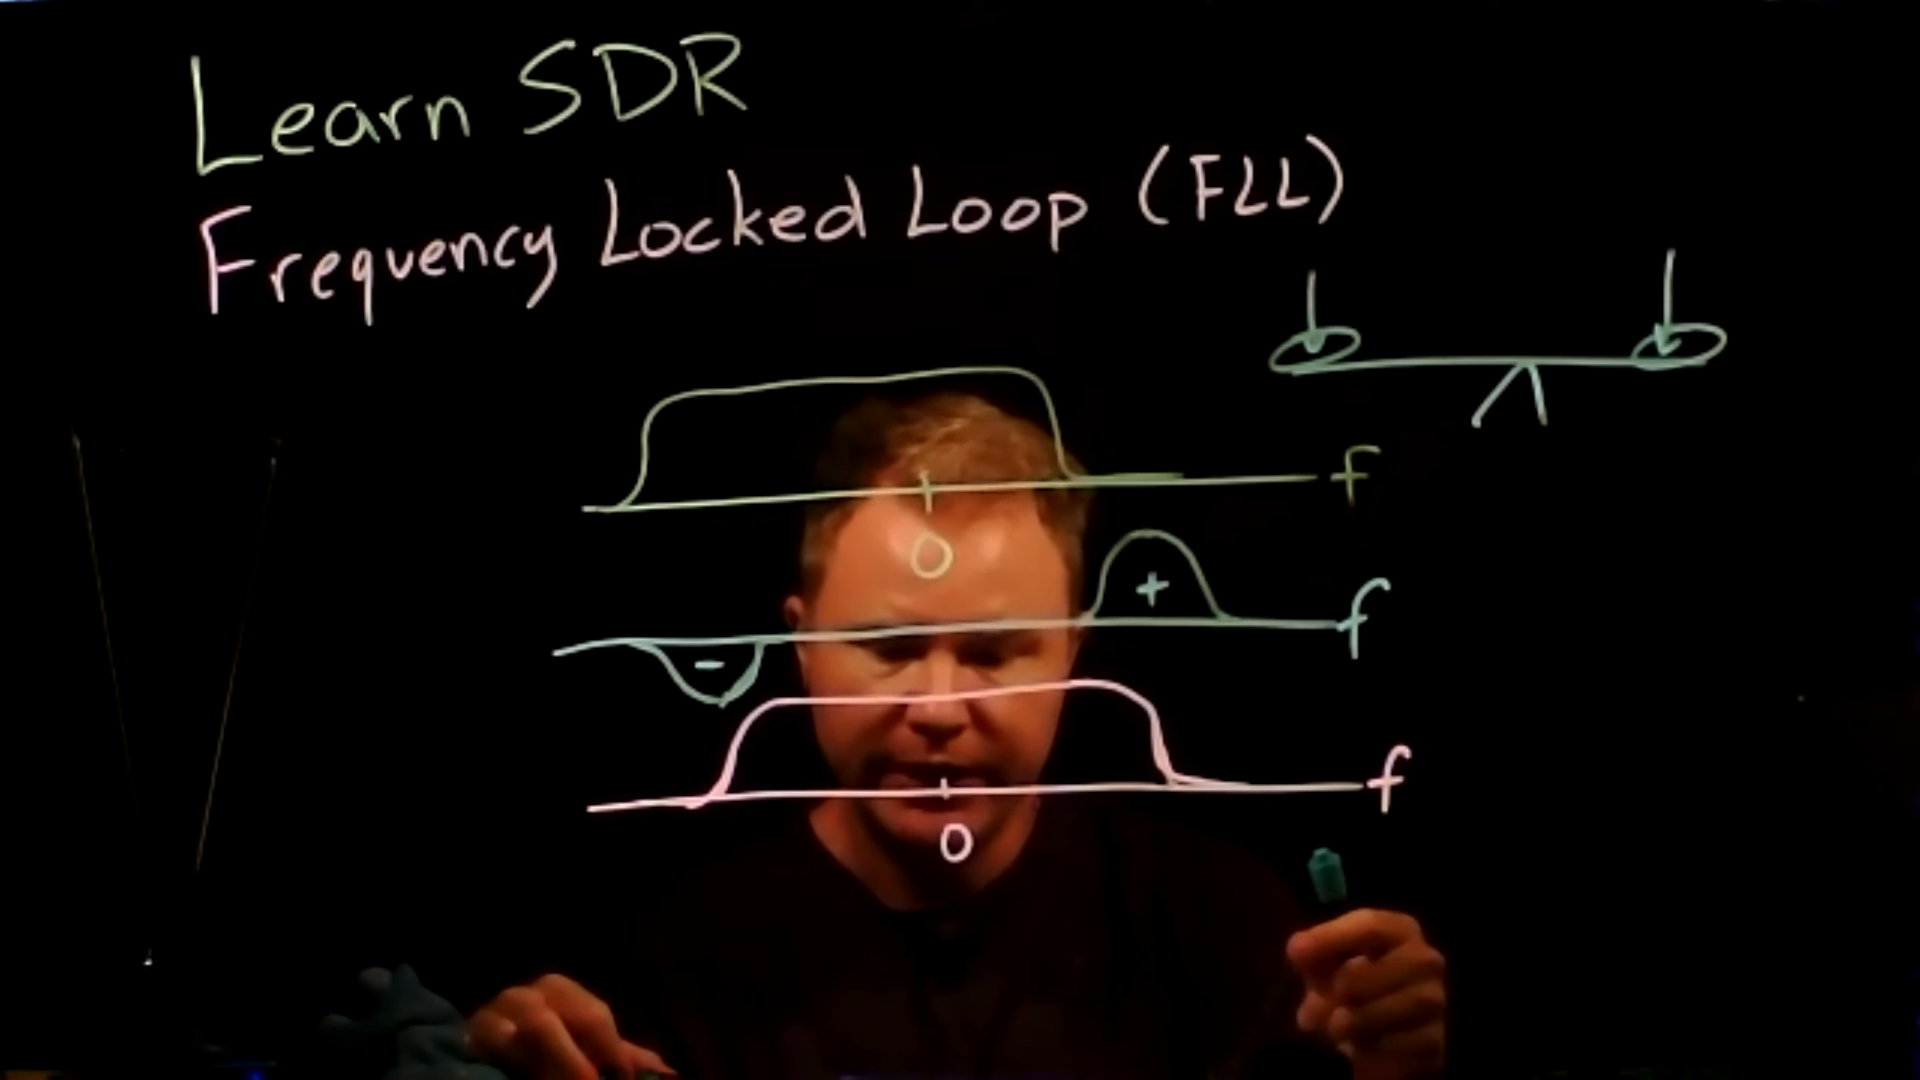 Learn SDR
Frequency Locked Loop (FLL)
f
0
+
f
-
f
0